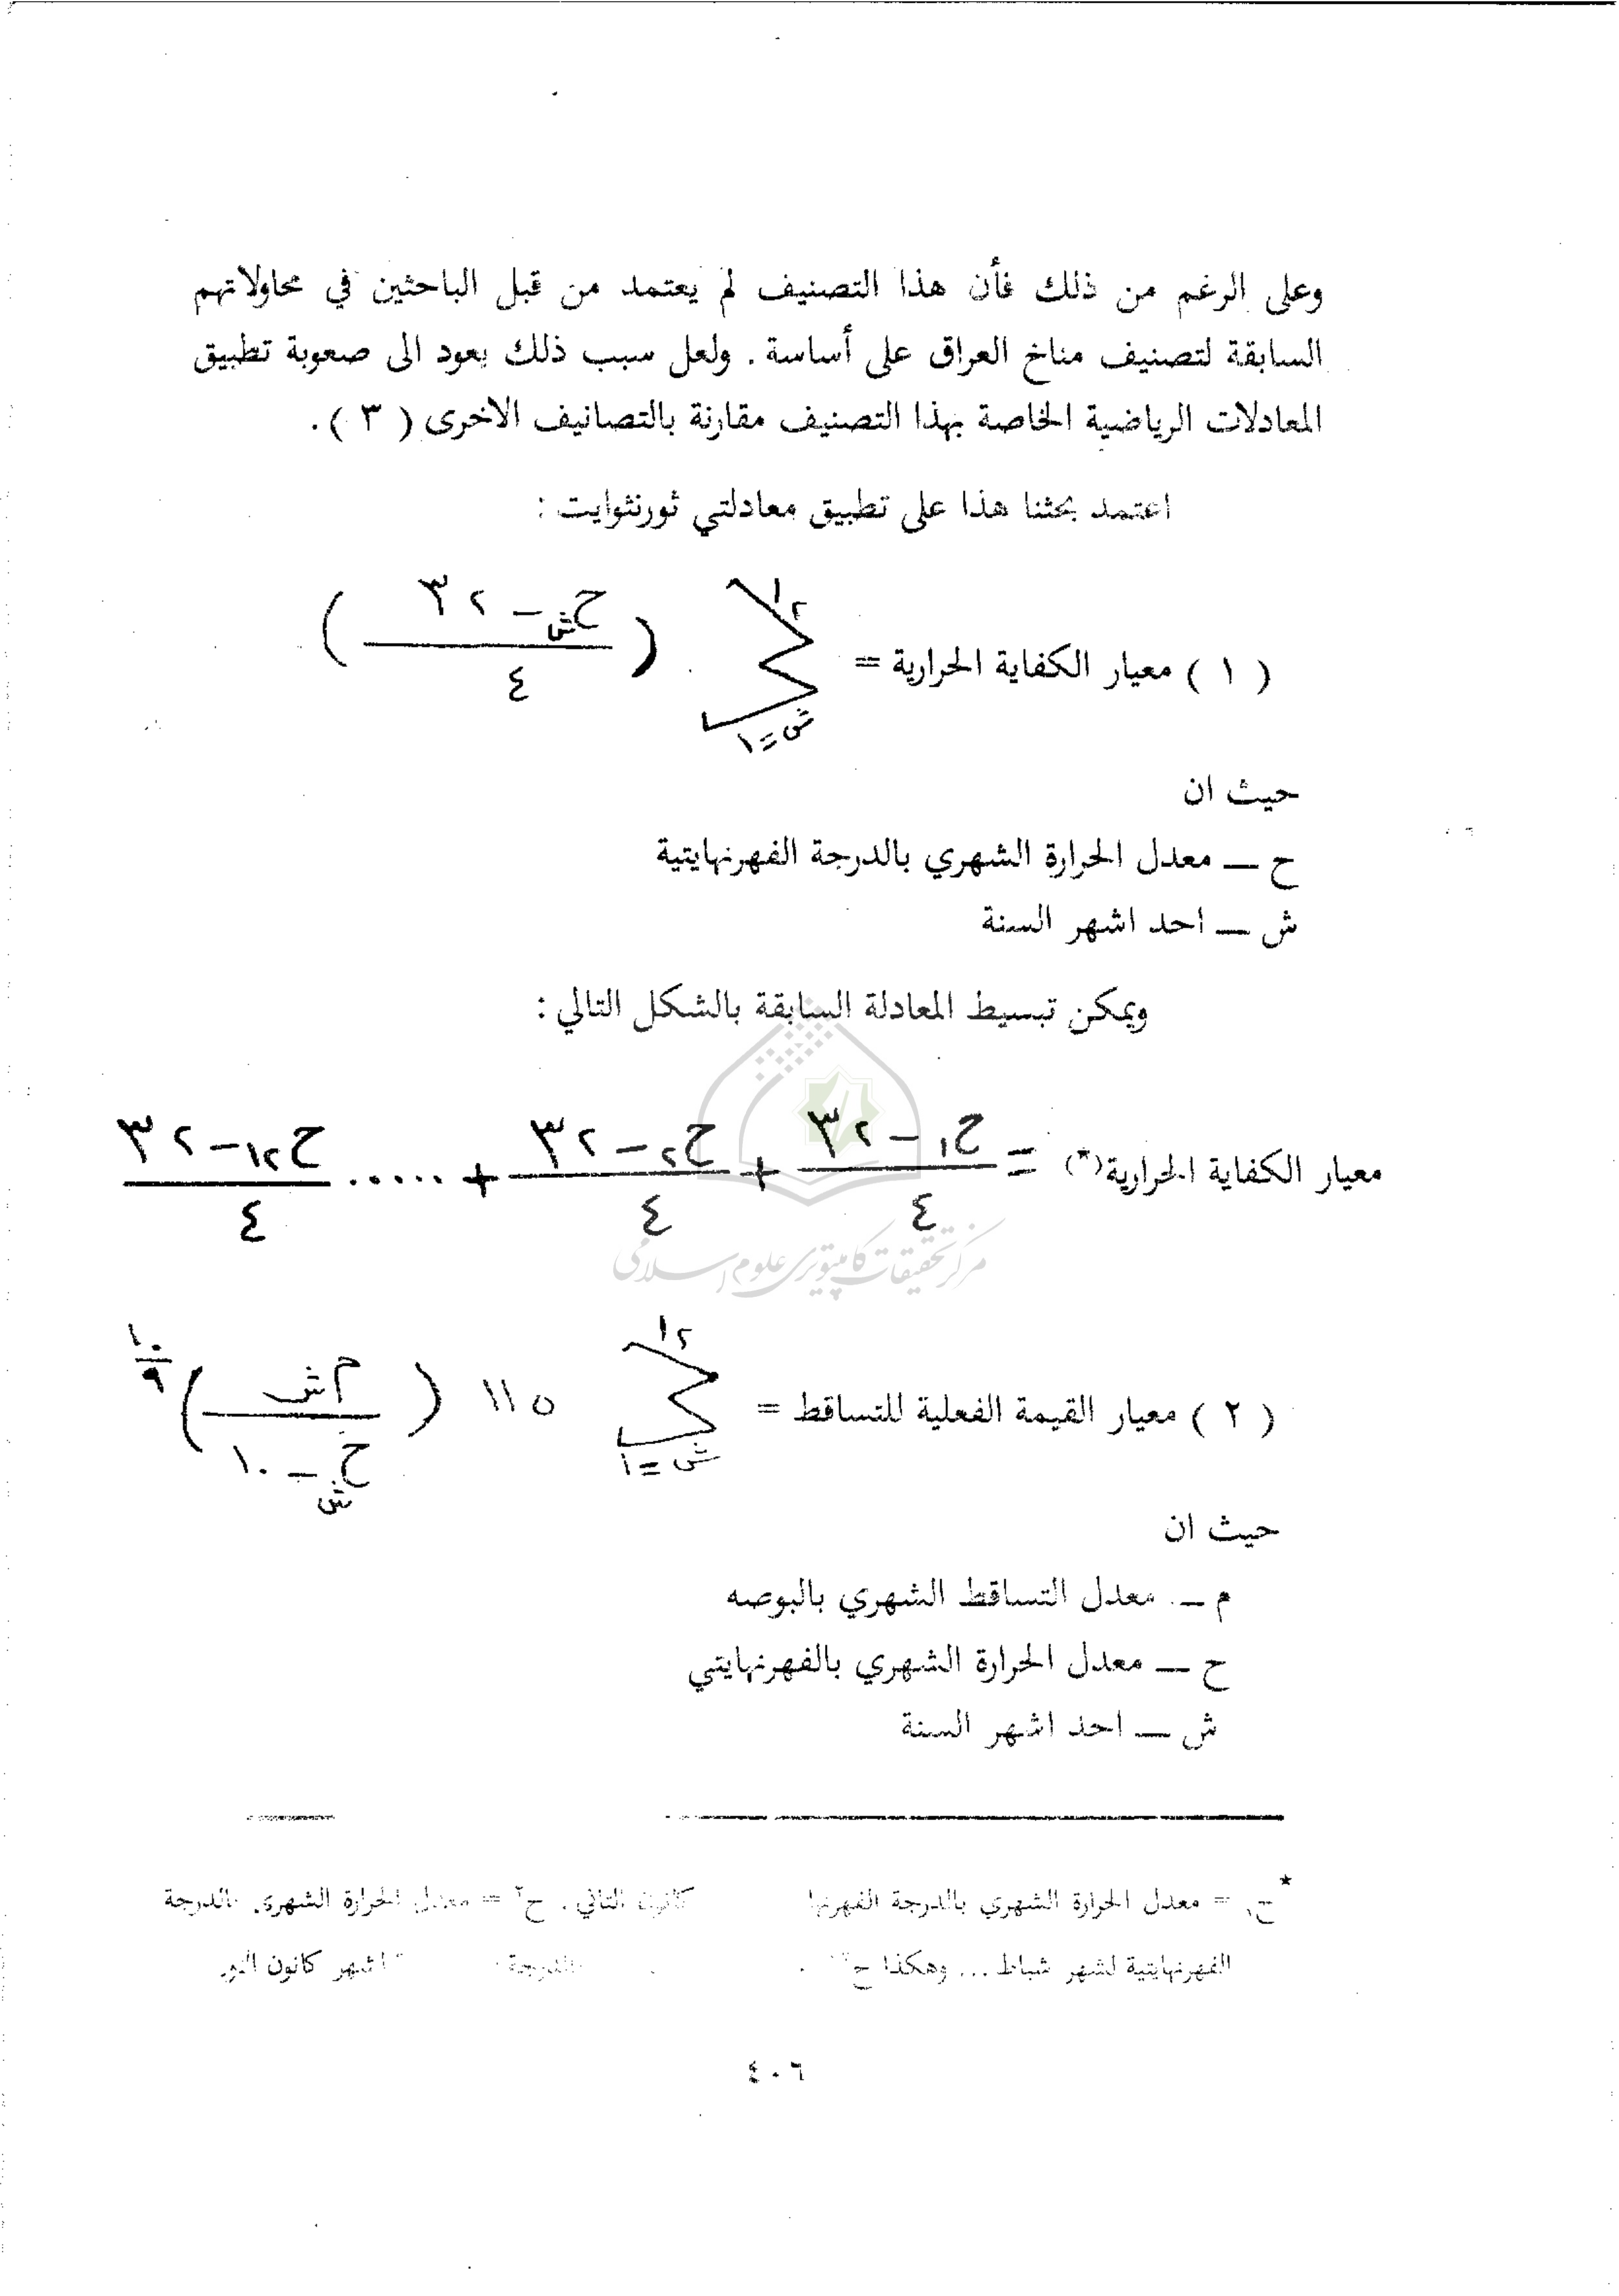 وعلى الرغم من ذلك فأن هذا التصنيف لم يعتمد من قبل الباحثين في محاولاتهم
السابقة لتصنيف مناخ العراق على أساسة . ولعل سبب ذلك يعود الى صعوبة تطبيق
المعادلات الرياضية الخاصة بهذا التصنيف مقارنة بالتصانيف الاخرى ( ٣ ) .
اعتمد بحثنا هذا على تطبيق معادلتي ثورنثوايت :
( ١ ) معيار الكفاية الحرارية = ١٢ ∑ ش=١ ( (حش – ٣٢) / ٤ )
حيث ان
ح ـــ معدل الحرارة الشهري بالدرجة الفهرنهايتية
ش ـــ احد اشهر السنة
ويمكن تبسيط المعادلة السابقة بالشكل التالي :
معيار الكفاية الحرارية(*) = (ح١ – ٣٢) / ٤ + (ح٢ – ٣٢) / ٤ + ..... (ح١٢ – ٣٢) / ٤
مركز تحقيقات كامپيوترى علوم اسلامى
( ٢ ) معيار القيمة الفعلية للتساقط = ١٢ ∑ ش=١ ١١٥ ( م ش / (حش – ١٠) ) ١٠/٩
حيث ان
م ـــ معدل التساقط الشهري بالبوصه
ح ـــ معدل الحرارة الشهري بالفهرنهايتي
ش ـــ احد اشهر السنة
* ح١ = معدل الحرارة الشهري بالدرجة كانون الثاني . ح٢ = معدل الحرارة الشهري بالدرجة
الفهرنهايتية لشهر شباط ... وهكذا ح الدرجة اشهر كانون
٤٠٦